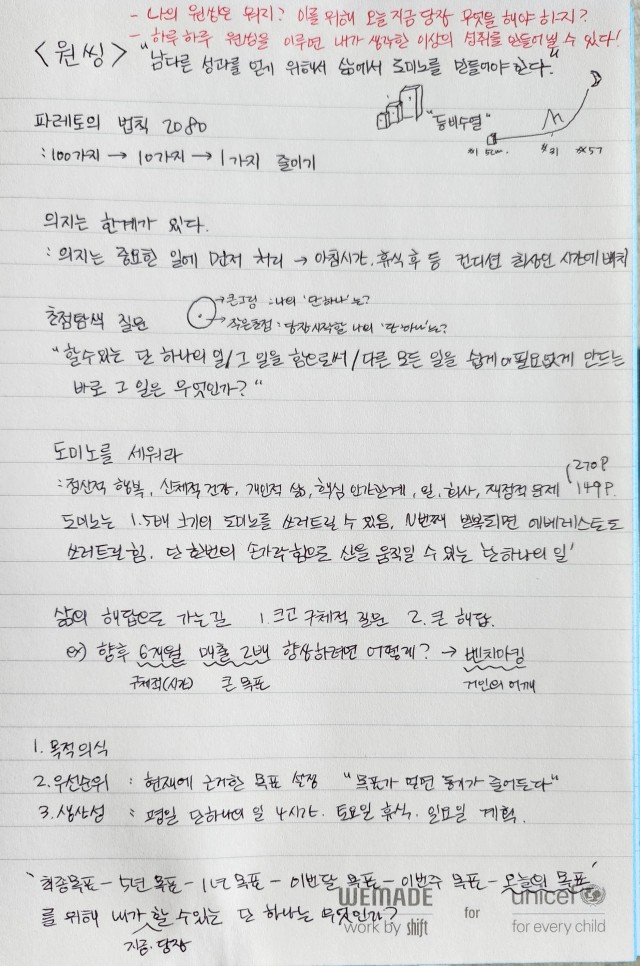 - 나의 원씽은 뭐지? 이를 위해 오늘 지금 당장 무엇을 해야 하지?
- 하루하루 원씽을 이루면 내가 생각한 이상의 성취를 만들어낼 수 있다!
<원씽> "남다른 성과를 얻기 위해서 삶에서 도미노를 만들어야 한다."
파레토의 법칙 2080
"등비수열"
#1 5cm. #31 #57
: 100가지 → 10가지 → 1가지 줄이기
의지는 한계가 있다.
: 의지는 중요한 일에 먼저 처리 → 아침시간. 휴식 후 등 컨디션 최상인 시간에 배치
초점탐색 질문
→ 큰그림 : 나의 '단 하나'는?
→ 작은초점 : 당장 시작할 나의 '단 하나'는?
"할 수 있는 단 하나의 일/그 일을 함으로써/다른 모든 일을 쉽게 or 필요없게 만드는
바로 그 일은 무엇인가?"
도미노를 세워라
270P
: 정신적 행복, 신체적 건강, 개인적 삶, 핵심 인간관계, 일, 회사, 재정적 문제 149P.
도미노는 1.5배 크기의 도미노를 쓰러트릴 수 있음, N번째 반복되면 에베레스트도
쓰러트릴 힘. 단 한번의 손가락 힘으로 산을 움직일 수 있는 '단 하나의 일'
삶의 해답으로 가는 길 1. 크고 구체적 질문 2. 큰 해답.
ex) 향후 6개월 매출 2배 향상하려면 어떻게? → 벤치마킹
구체적(시간) 큰 목표 거인의 어깨
1. 목적의식
2. 우선순위 : 현재에 근거한 목표 설정 "목표가 멀면 동기가 줄어든다"
3. 생산성 : 평일 단하나의 일 4시간. 토요일 휴식. 일요일 계획.
'최종목표 - 5년 목표 - 1년 목표 - 이번달 목표 - 이번주 목표 - 오늘의 목표'
를 위해 내가 할 수 있는 단 하나는 무엇인가?
지금. 당장
WEMADE for unicef
work by shift for every child